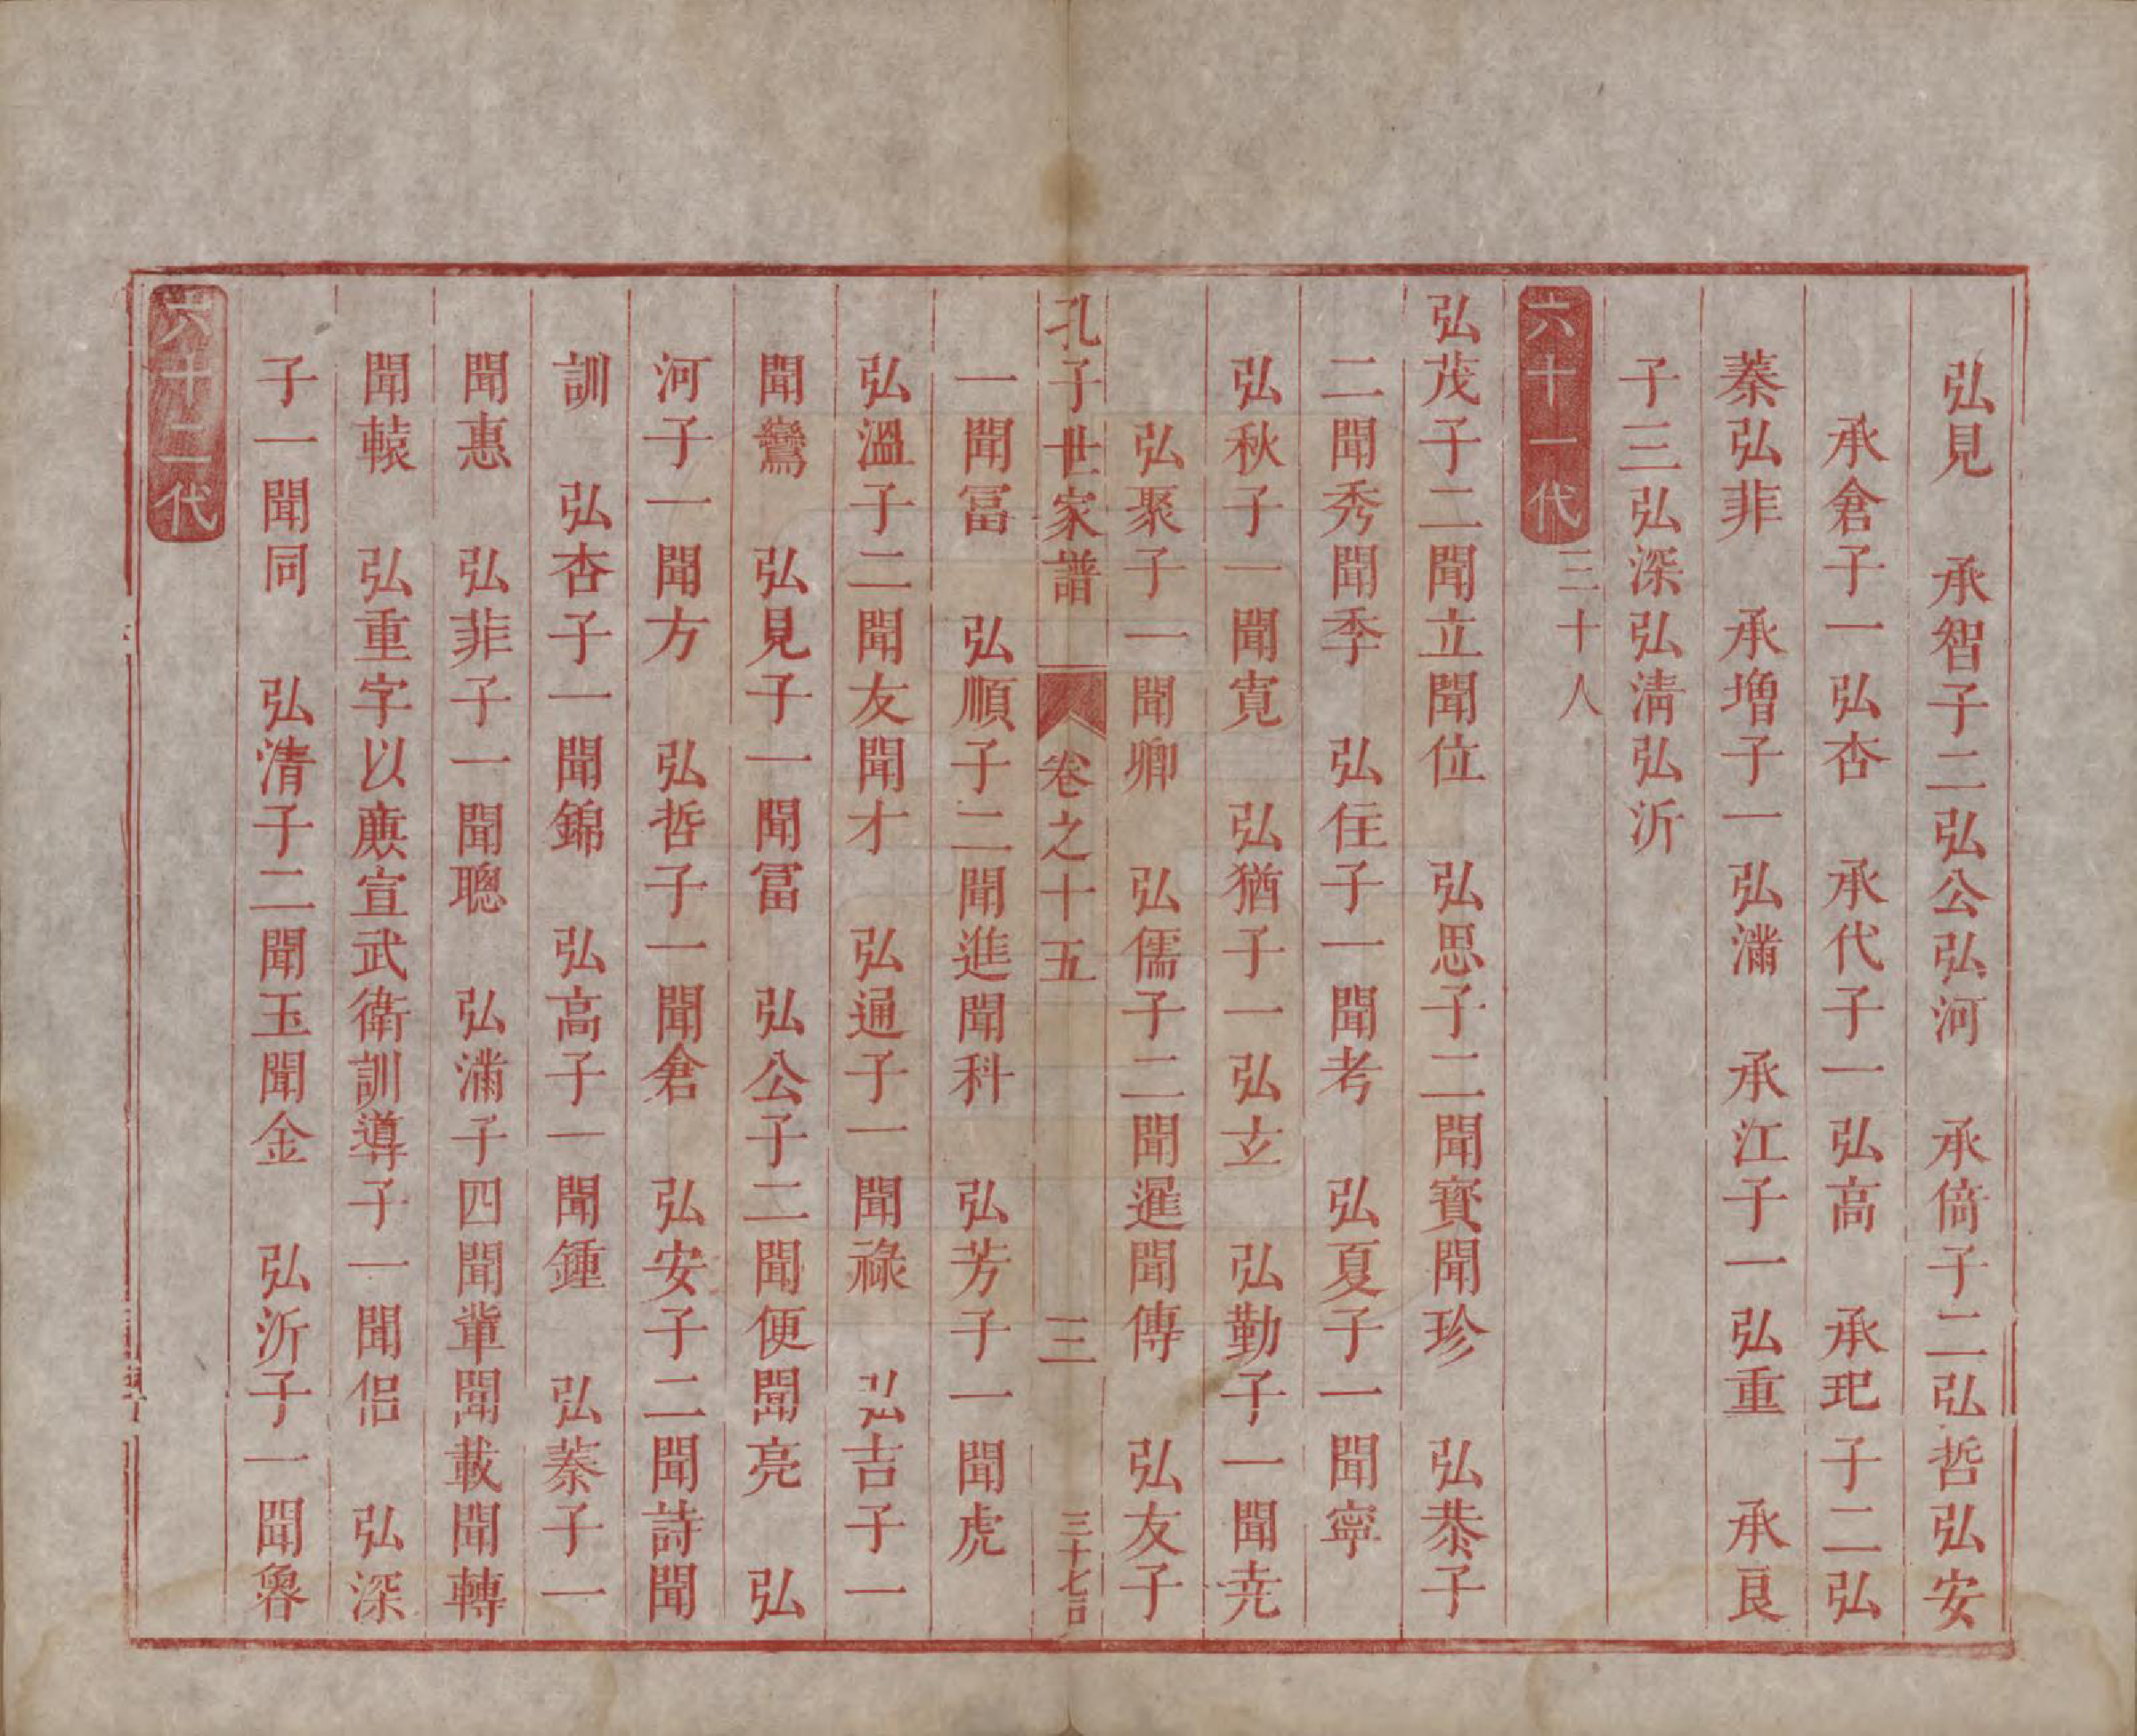 弘見　承智子二弘公弘河　承倚子二弘哲弘安
承倉子一弘杏　承代子一弘高　承玘子二弘
蓁弘非　承增子一弘滿　承江子一弘重　承良
子三弘深弘清弘沂
六十一代三十人
弘茂子二聞立聞位　弘思子二聞寶聞珍　弘恭子
二聞秀聞季　弘住子一聞考　弘夏子一聞寧
弘秋子一聞寛　弘猶子一弘立　弘勤子一聞尭
弘聚子一聞卿　弘儒子二聞暹聞傳　弘友子
孔子世家譜　卷之十五　三
一聞冨　弘順子二聞進聞科　弘芳子一聞虎
弘溫子二聞友聞才　弘通子一聞祿　弘吉子一
聞鸞　弘見子一聞冨　弘公子二聞便聞亮　弘
河子一聞方　弘哲子一聞倉　弘安子二聞詩聞
訓　弘杏子一聞錦　弘高子一聞鍾　弘蓁子一
聞惠　弘非子一聞聰　弘滿子四聞輩聞載聞轉
聞轅　弘重字以𢊍宣武衛訓導子一聞侶　弘深
子一聞同　弘清子二聞玉聞金　弘沂子一聞魯
六十二代